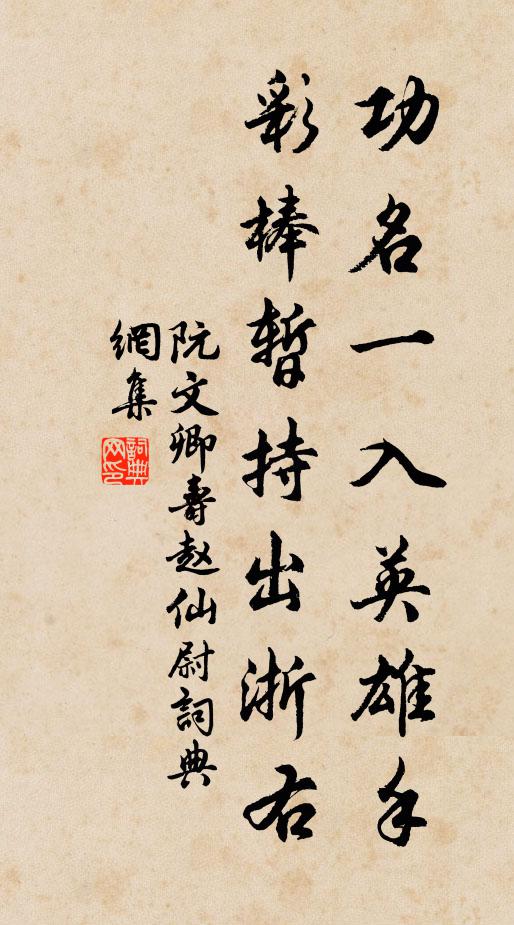 功名一入英雄手
彩棒暫持出浙右
阮文卿壽赵仙尉詞典
網集
詞典
网印